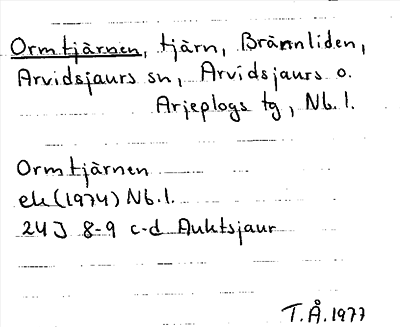 Ormtjärnen, tjärn, Brännliden,
Arvidsjaurs sn, Arvidsjaurs o.
Arjeplogs tg, Nb. l.
Ormtjärnen
ek (1974) Nb. l.
24J 8-9 c-d Auktsjaur
T.Å. 1977